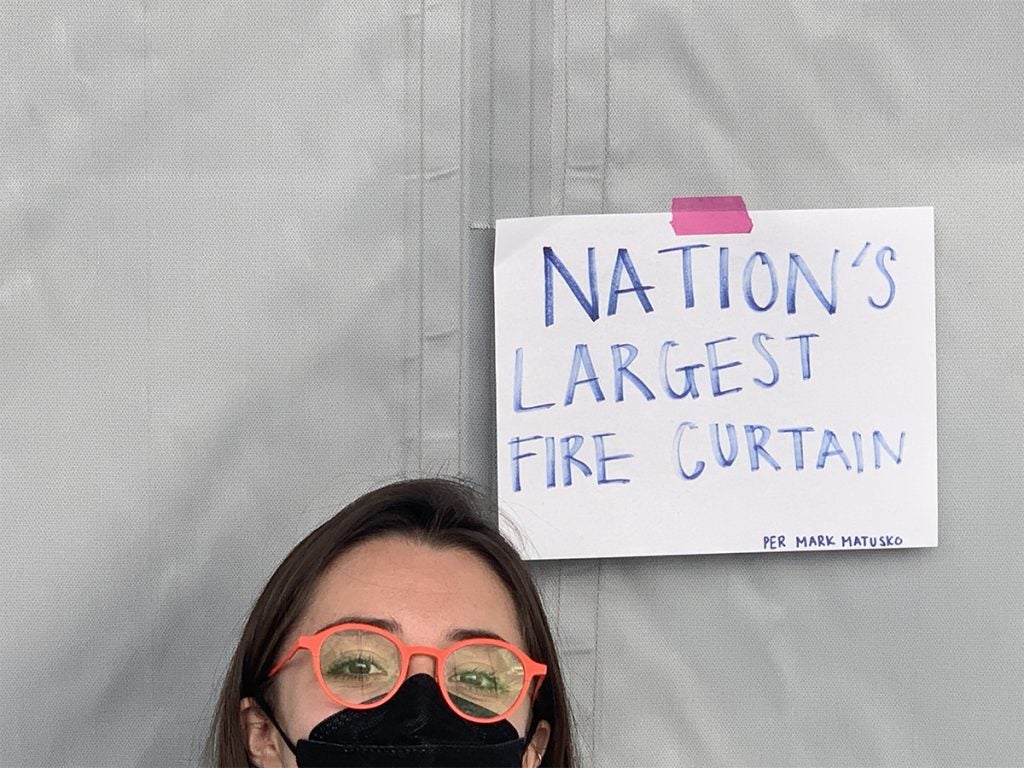 NATION'S
LARGEST
FIRE CURTAIN
PER MARK MATUSKO